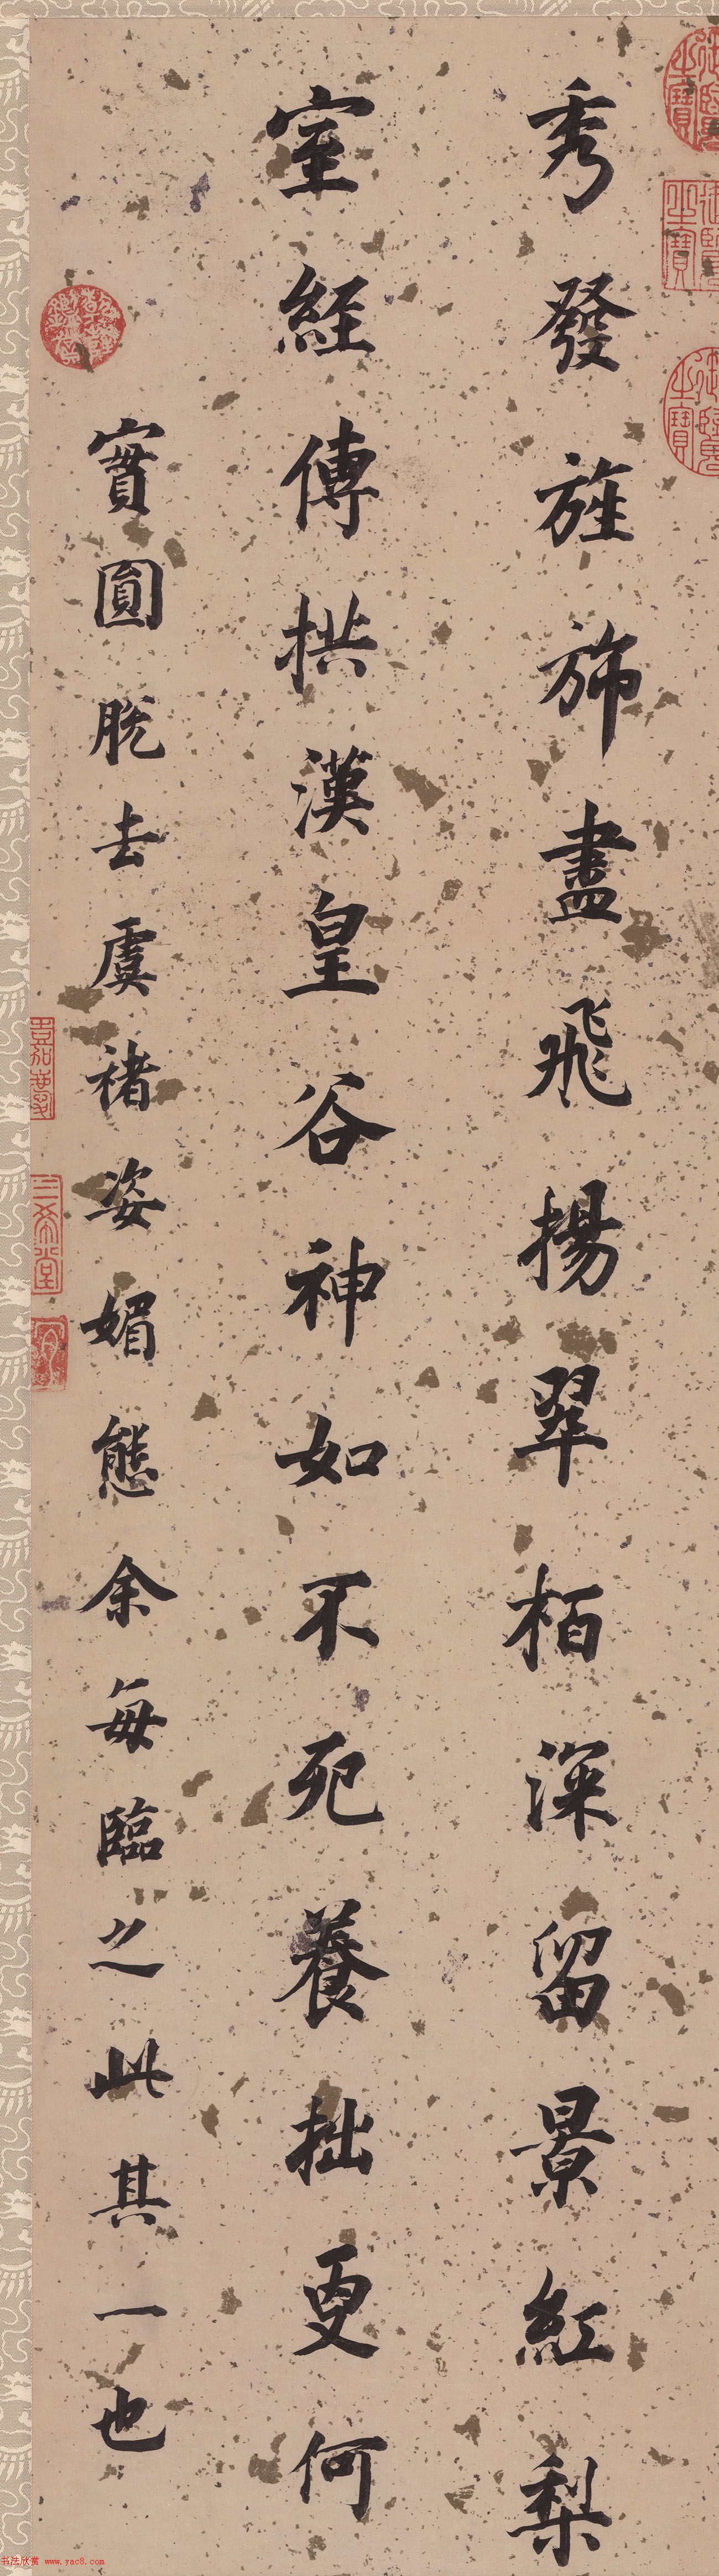 秀發旌斾盡飛揚翠栢深留景紅梨
室經傳拱漢皇谷神如不死養拙更何
實圓脫去虞褚姿媚態余每臨之此其一也
三希堂
书法欣赏 www.yac8.com